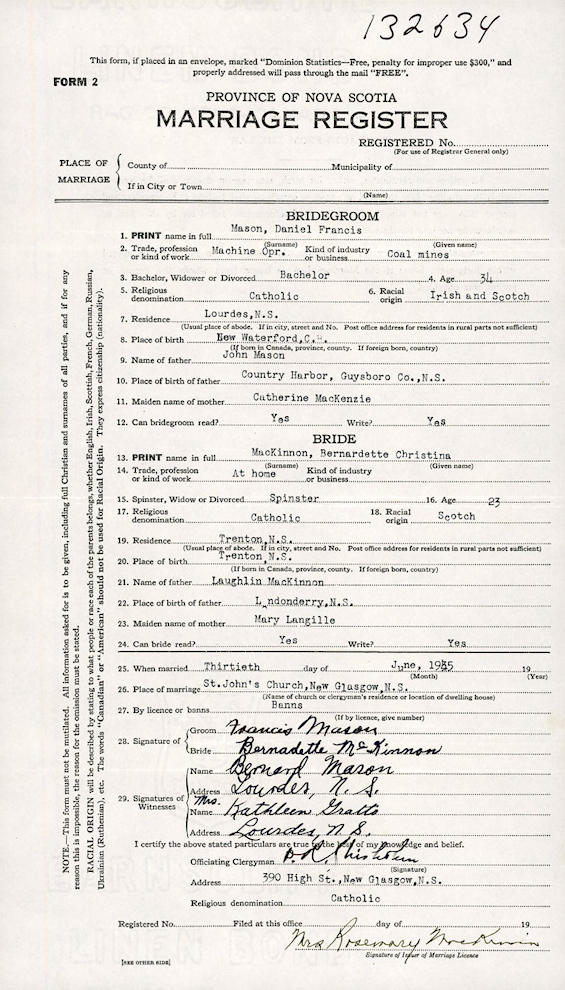 132634
This form, if placed in an envelope, marked "Dominion Statistics—Free, penalty for improper use $300," and
properly addressed will pass through the mail "FREE".
FORM 2
PROVINCE OF NOVA SCOTIA
MARRIAGE REGISTER
REGISTERED No.
(For use of Registrar General only)
PLACE OF MARRIAGE
County of Municipality of
If in City or Town
(Name)
BRIDEGROOM
1. PRINT name in full Mason, Daniel Francis
(Surname) (Given name)
2. Trade, profession or kind of work Machine Opr. Kind of industry or business Coal mines
3. Bachelor, Widower or Divorced Bachelor 4. Age 34
5. Religious denomination Catholic 6. Racial origin Irish and Scotch
7. Residence Lourdes,N.S.
(Usual place of abode. If in city, street and No. Post office address for residents in rural parts not sufficient)
8. Place of birth New Waterford,C.B.
(If born in Canada, province, county. If foreign born, country)
9. Name of father John Mason
10. Place of birth of father Country Harbor, Guysboro Co.,N.S.
11. Maiden name of mother Catherine MacKenzie
12. Can bridegroom read? Yes Write? Yes
BRIDE
13. PRINT name in full MacKinnon, Bernardette Christina
(Surname) (Given name)
14. Trade, profession or kind of work At home Kind of industry or business
15. Spinster, Widow or Divorced Spinster 16. Age 23
17. Religious denomination Catholic 18. Racial origin Scotch
19. Residence Trenton,N.S.
(Usual place of abode. If in city, street and No. Post office address for residents in rural parts not sufficient)
20. Place of birth Trenton,N.S.
(If born in Canada, province, county. If foreign born, country)
21. Name of father Laughlin MacKinnon
22. Place of birth of father Londonderry,N.S.
23. Maiden name of mother Mary Langille
24. Can bride read? Yes Write? Yes
25. When married Thirtieth day of June, 19 19
(Month) (Year)
26. Place of marriage St.John's Church,New Glasgow,N.S.
(Name of church or clergyman's residence or location of dwelling house)
27. By licence or banns Banns
(If by licence, give number)
28. Signature of
Groom Francis Mason
Bride Bernadette McKinnon
29. Signatures of Witnesses
Name Bernard Mason
Address Lourdes, N. S.
Name Mrs. Kathleen Gratto
Address Lourdes, N S.
I certify the above stated particulars are true to the best of my knowledge and belief.
Officiating Clergyman Chisholm
(Signature)
Address 390 High St.,New Glasgow,N.S.
Religious denomination Catholic
Registered No. Filed at this office day of 19
Mrs Rosemary
Signature of Issuer of Marriage Licence
[SEE OTHER SIDE]
NOTE.—This form must not be mutilated. All information asked for is to be given, including full Christian and surnames of all parties, and if for any
reason this is impossible, the reason for the omission must be stated.
RACIAL ORIGIN will be described by stating to what people or race each of the parents belongs, whether English, Irish, Scottish, French, German, Russian,
Ukrainian (Ruthenian), etc. The words "Canadian" or "American" should not be used for Racial Origin. They express citizenship (nationality).